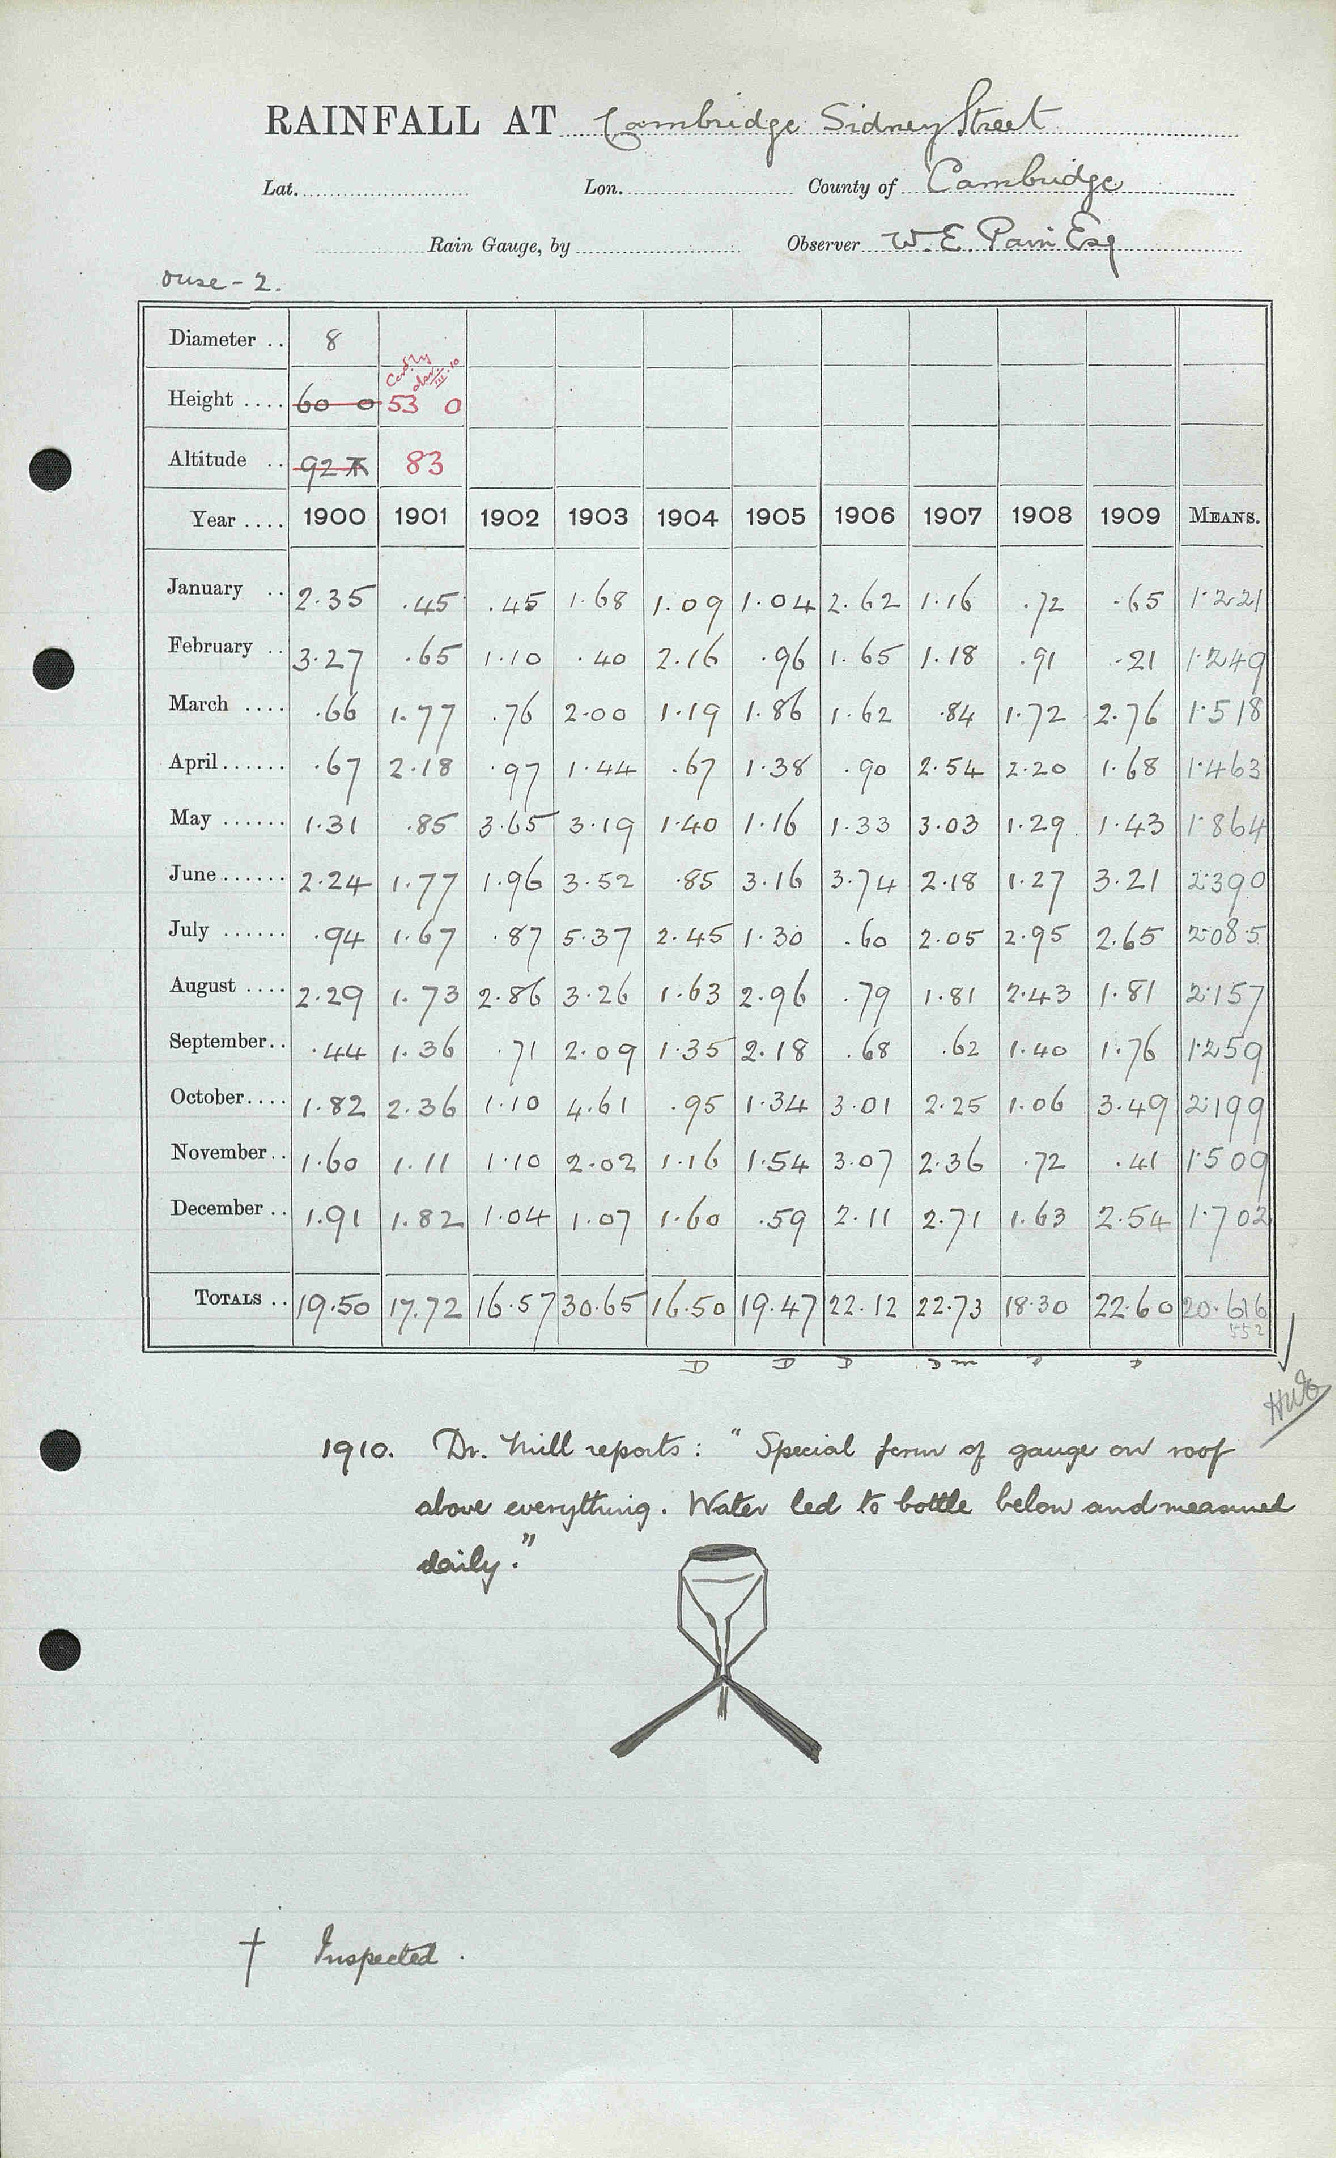 RAINFALL AT Cambridge Sidney Street
Lat. Lon. County of Cambridge
Rain Gauge, by Observer W. E. Pain Esq
Ouse - 2.
Diameter .. 8
Height .... 60 0 53 0
Altitude .. 92 83
Year .... 1900 1901 1902 1903 1904 1905 1906 1907 1908 1909 MEANS.
January .. 2.35 .45 .45 1.68 1.09 1.04 2.62 1.16 .72 .65 1.221
February .. 3.27 .65 1.10 .40 2.16 .96 1.65 1.18 .91 .21 1.249
March .... .66 1.77 .76 2.00 1.19 1.86 1.62 .84 1.72 2.76 1.518
April ...... .67 2.18 .97 1.44 .67 1.38 .90 2.54 2.20 1.68 1.463
May ...... 1.31 .85 3.65 3.19 1.40 1.16 1.33 3.03 1.29 1.43 1.864
June ...... 2.24 1.77 1.96 3.52 .85 3.16 3.74 2.18 1.27 3.21 2.390
July ...... .94 1.67 .87 5.37 2.45 1.30 .60 2.05 2.95 2.65 2.085
August .... 2.29 1.73 2.86 3.26 1.63 2.96 .79 1.81 2.43 1.81 2.157
September .. .44 1.36 .71 2.09 1.35 2.18 .68 .62 1.40 1.76 1.259
October .... 1.82 2.36 1.10 4.61 .95 1.34 3.01 2.25 1.06 3.49 2.199
November .. 1.60 1.11 1.10 2.02 1.16 1.54 3.07 2.36 .72 .41 1.509
December .. 1.91 1.82 1.04 1.07 1.60 .59 2.11 2.71 1.63 2.54 1.702
TOTALS .. 19.50 17.72 16.57 30.65 16.50 19.47 22.12 22.73 18.30 22.60 20.616
552
D D D
1910. Dr. Mill reports: "Special form of gauge on roof
above everything. Water led to bottle below and measured
daily."
† Inspected.